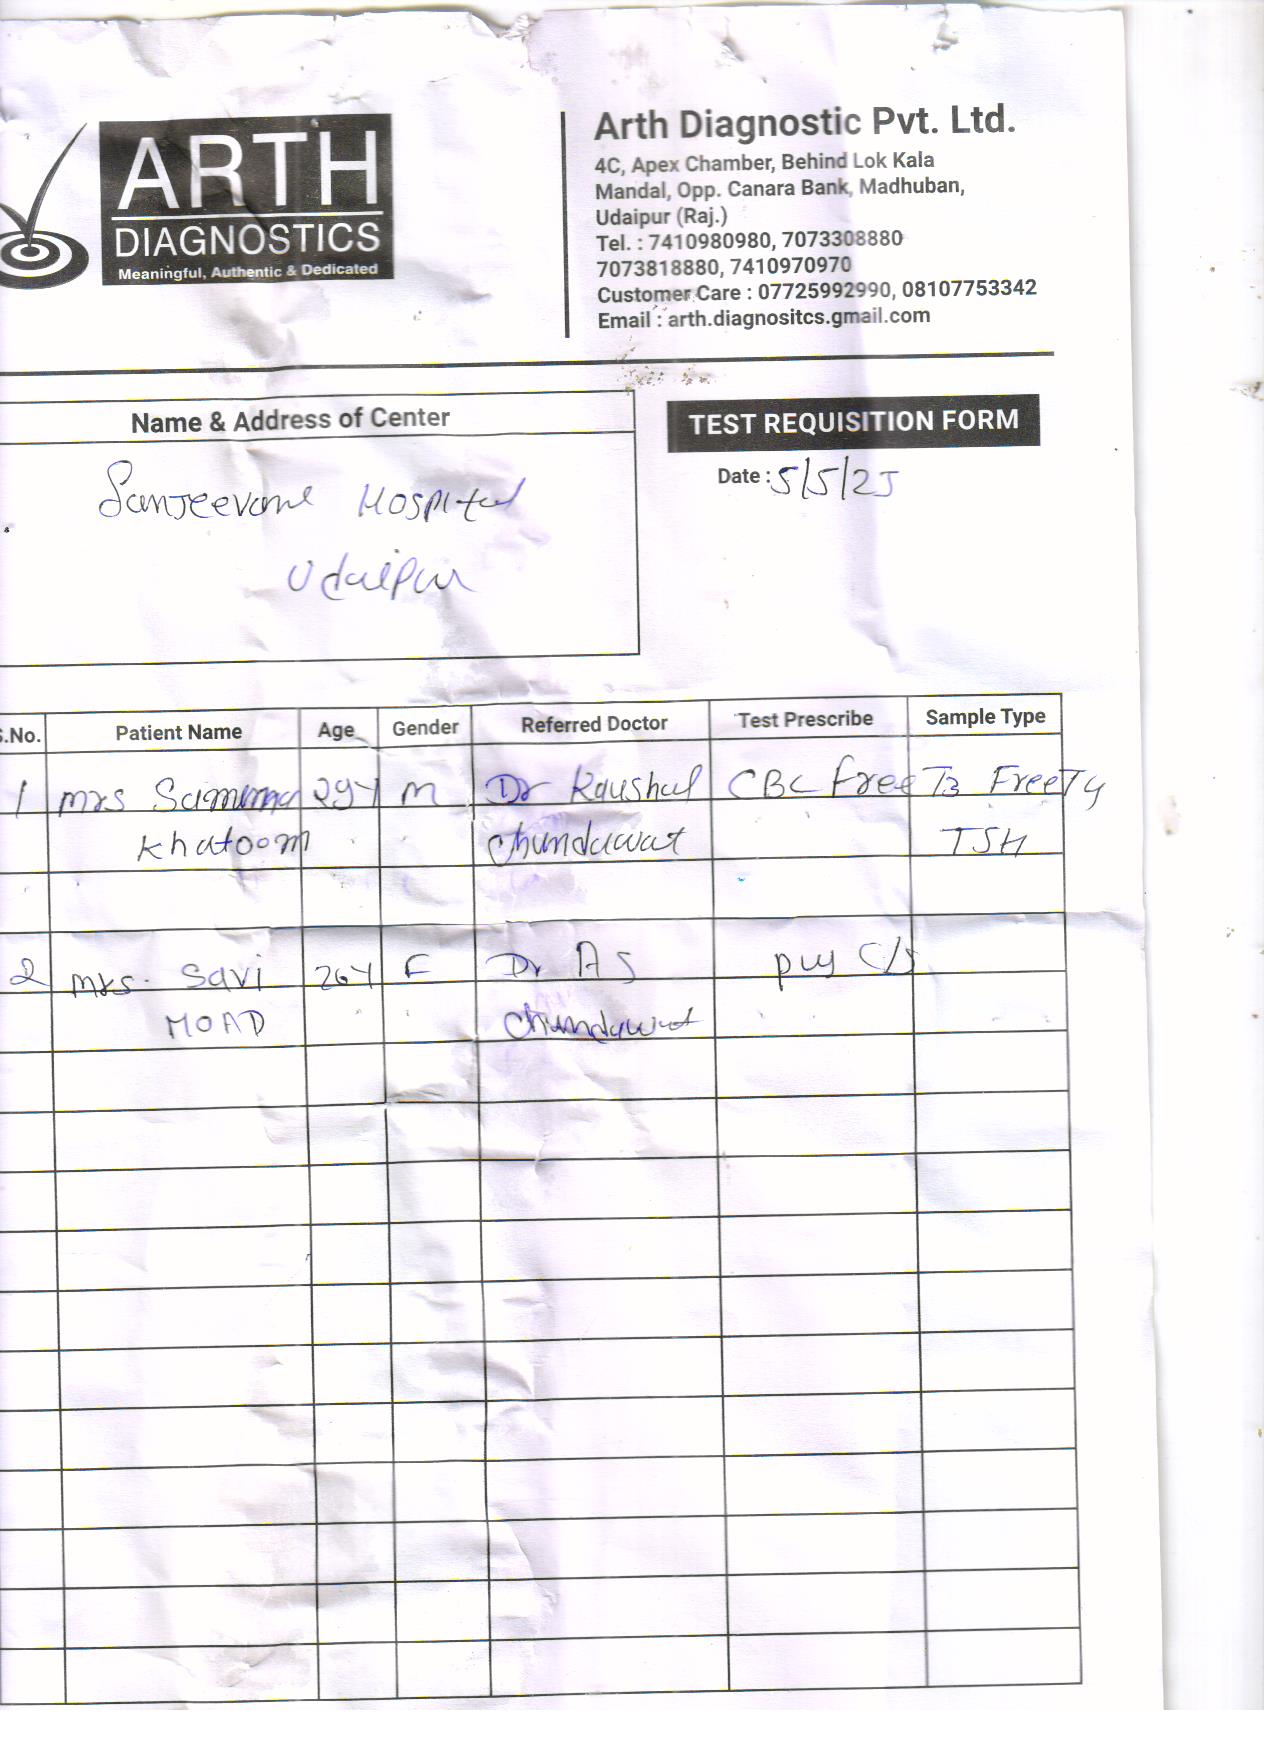 ARTH
DIAGNOSTICS
Meaningful, Authentic & Dedicated
Arth Diagnostic Pvt. Ltd.
4C, Apex Chamber, Behind Lok Kala
Mandal, Opp. Canara Bank, Madhuban,
Udaipur (Raj.)
Tel. : 7410980980, 7073308880
7073818880, 7410970970
Customer Care : 07725992990, 08107753342
Email : arth.diagnositcs.gmail.com
Name & Address of Center
Sanjeevani Hospital
Udaipur
TEST REQUISITION FORM
Date : 5/5/25
S.No. Patient Name Age Gender Referred Doctor Test Prescribe Sample Type
1 mrs 29Y m Dr Kaushal CBC Free T3 Free T4
Khatoom Chundawat TSH
2 mrs. Savi 26Y F Dr A S pus C/S
MOAD Chundawat